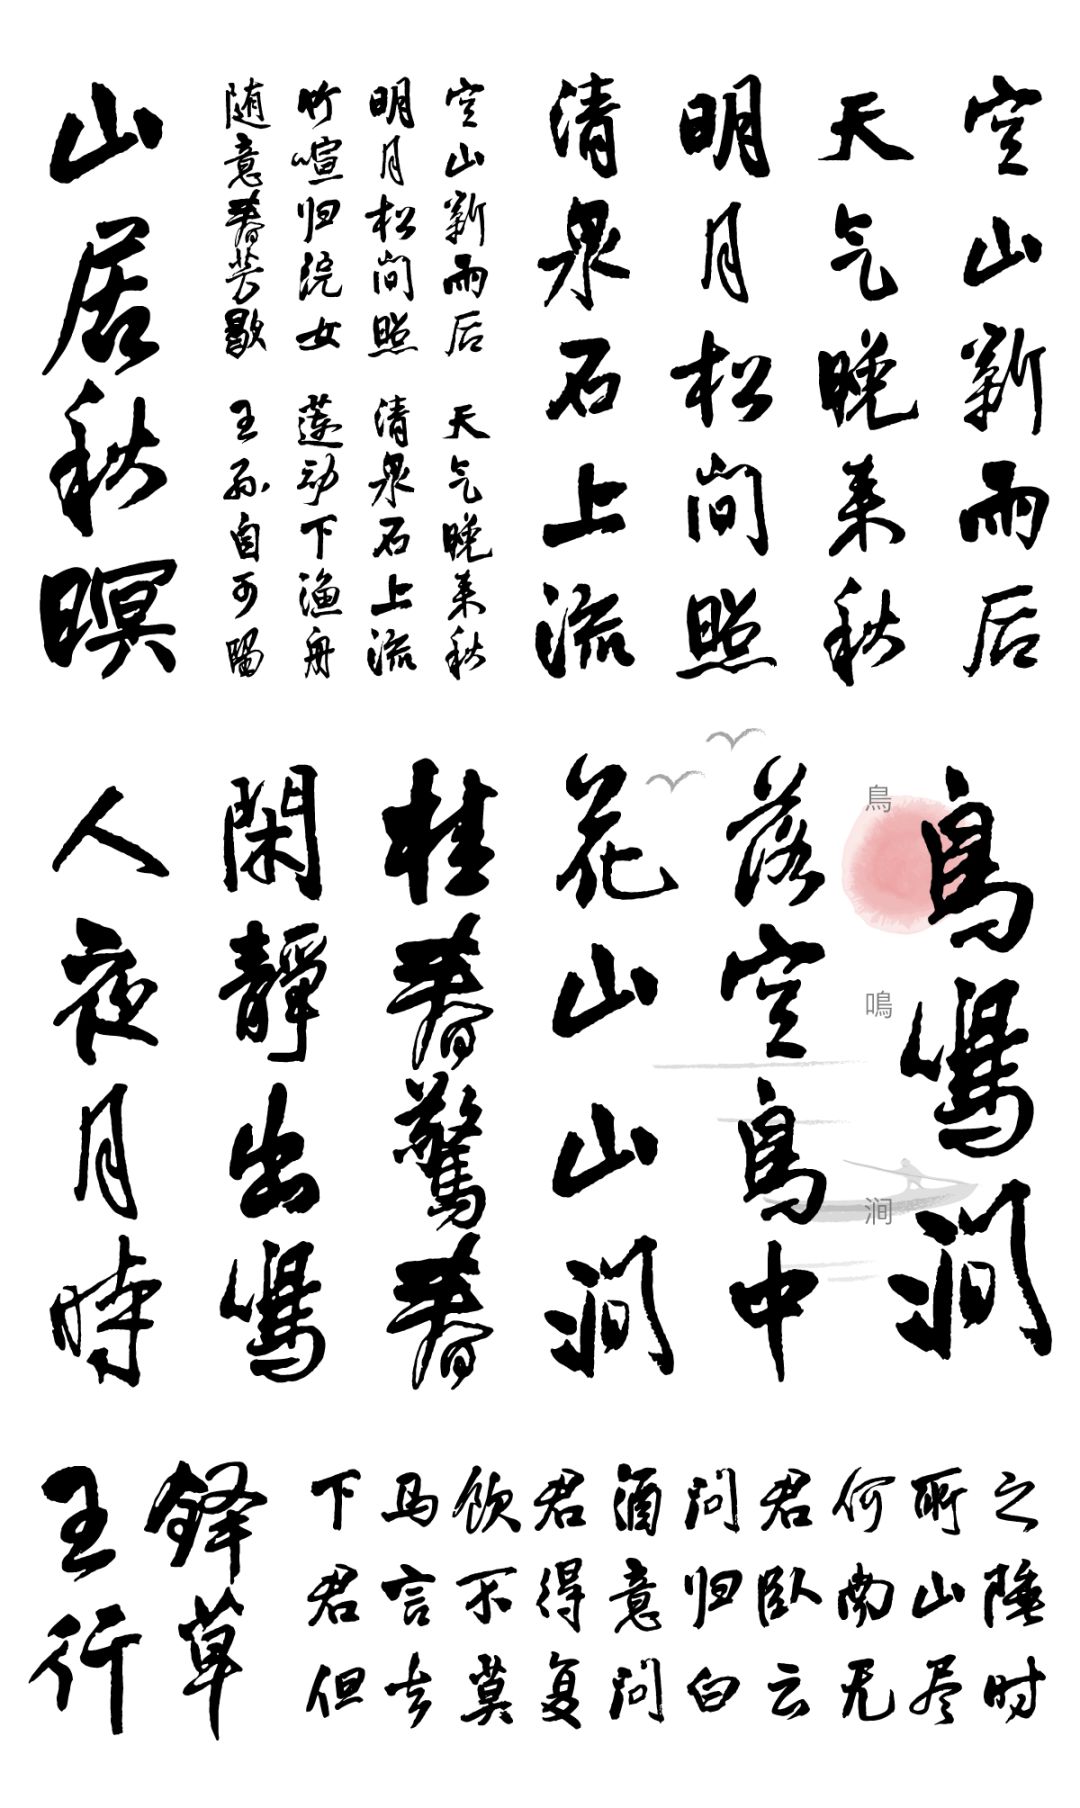 空山新雨后
天气晚来秋
明月松间照
清泉石上流
空山新雨后 天气晚来秋
明月松间照 清泉石上流
竹喧归浣女 莲动下渔舟
随意春芳歇 王孙自可留
山居秋暝
鳥鳴涧
鳥鳴涧
人閑桂花落
夜靜春山空
月出驚山鳥
時鳴春涧中
王铎
行草
下马饮君酒问君何所之
君言不得意归卧南山陲
但去莫复问白云无尽时